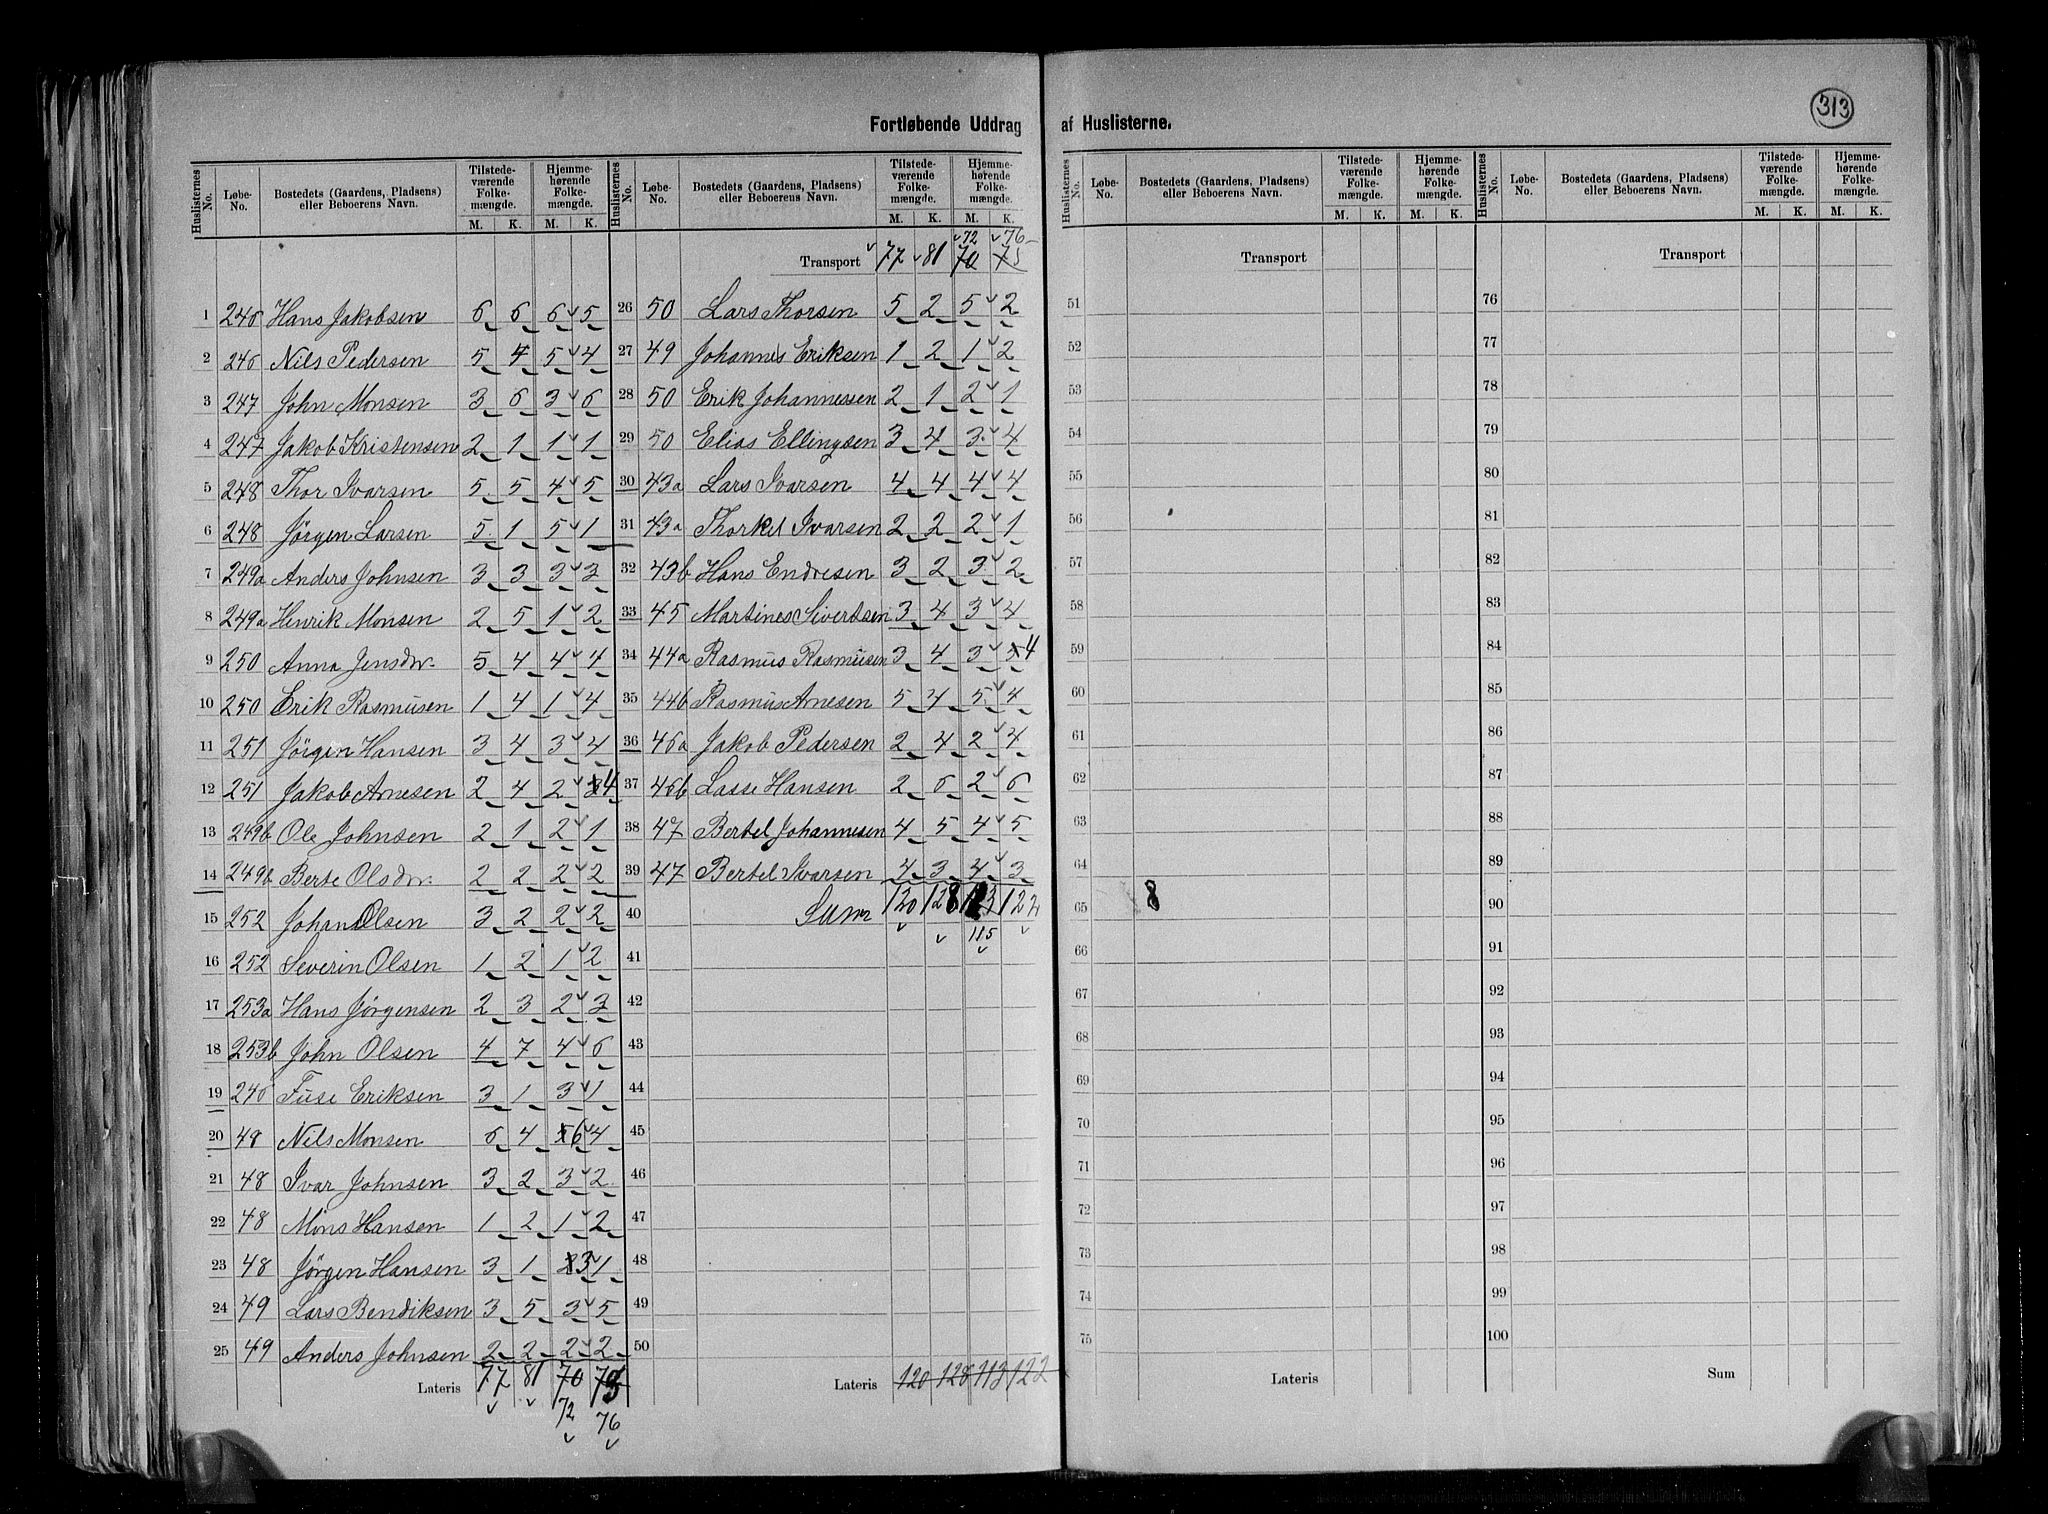 313
Fortløbende Uddrag af Huslisterne.
Huslisternes No. | Løbe-No. | Bostedets (Gaardens, Pladsens) eller Beboerens Navn. | Tilstedeværende Folkemængde. M. K. | Hjemmehørende Folkemængde. M. K.
1 246 Hans Jakobsen 6 6 6 5
2 246 Nils Pedersen 5 4 5 4
3 247 John Monsen 3 6 3 6
4 247 Jakob Kristensen 2 1 1 1
5 248 Thor Ivarsen 5 5 4 5
6 248 Jørgen Larsen 5 1 5 1
7 249a Anders Johnsen 3 3 3 3
8 249a Henrik Monsen 2 5 1 2
9 250 Anna Jensdr. 5 4 4 4
10 250 Erik Rasmusen 1 4 1 4
11 251 Jørgen Hansen 3 4 3 4
12 251 Jakob Arnesen 2 4 2 4
13 249b Ole Johnsen 2 1 2 1
14 249b Berte Olsdr. 2 2 2 2
15 252 Johan Olsen 3 2 2 2
16 252 Severin Olsen 1 2 1 2
17 253a Hans Jørgensen 2 3 2 3
18 253b John Olsen 4 7 4 6
19 246 Fuse Eriksen 3 1 3 1
20 48 Nils Monsen 6 4 6 4
21 48 Ivar Johnsen 3 2 3 2
22 48 Mons Hansen 1 2 1 2
23 48 Jørgen Hansen 3 1 3 1
24 49 Lars Bendiksen 3 5 3 5
25 49 Anders Johnsen 2 2 2 2
Lateris 77 81 70 75
72 76
Huslisternes No. | Løbe-No. | Bostedets (Gaardens, Pladsens) eller Beboerens Navn. | Tilstedeværende Folkemængde. M. K. | Hjemmehørende Folkemængde. M. K.
72 76
Transport 77 81 70 75
26 50 Lars Thorsen 5 2 5 2
27 49 Johannes Eriksen 1 2 1 2
28 50 Erik Johannessen 2 1 2 1
29 50 Elias Ellingsen 3 4 3 4
30 43a Lars Ivarsen 4 4 4 4
31 43a Thorkel Ivarsen 2 2 2 1
32 43b Hans Endresen 3 2 3 2
33 45 Martines Sivertsen 3 4 3 4
34 44a Rasmus Rasmusen 3 4 3 4
35 44b Rasmus Arnesen 5 4 5 4
36 46a Jakob Pedersen 2 4 2 4
37 46b Lasse Hansen 2 6 2 6
38 47 Bertel Johannesen 4 5 4 5
39 47 Bertel Ivarsen 4 3 4 3
40 Sum 120 128 113 122
115
41
42
43
44
45
46
47
48
49
50
Lateris 120 128 113 122
Huslisternes No. | Løbe-No. | Bostedets (Gaardens, Pladsens) eller Beboerens Navn. | Tilstedeværende Folkemængde. M. K. | Hjemmehørende Folkemængde. M. K.
Transport
51
52
53
54
55
56
57
58
59
60
61
62
63
64
65 8
66
67
68
69
70
71
72
73
74
75
Lateris
Huslisternes No. | Løbe-No. | Bostedets (Gaardens, Pladsens) eller Beboerens Navn. | Tilstedeværende Folkemængde. M. K. | Hjemmehørende Folkemængde. M. K.
Transport
76
77
78
79
80
81
82
83
84
85
86
87
88
89
90
91
92
93
94
95
96
97
98
99
100
Sum